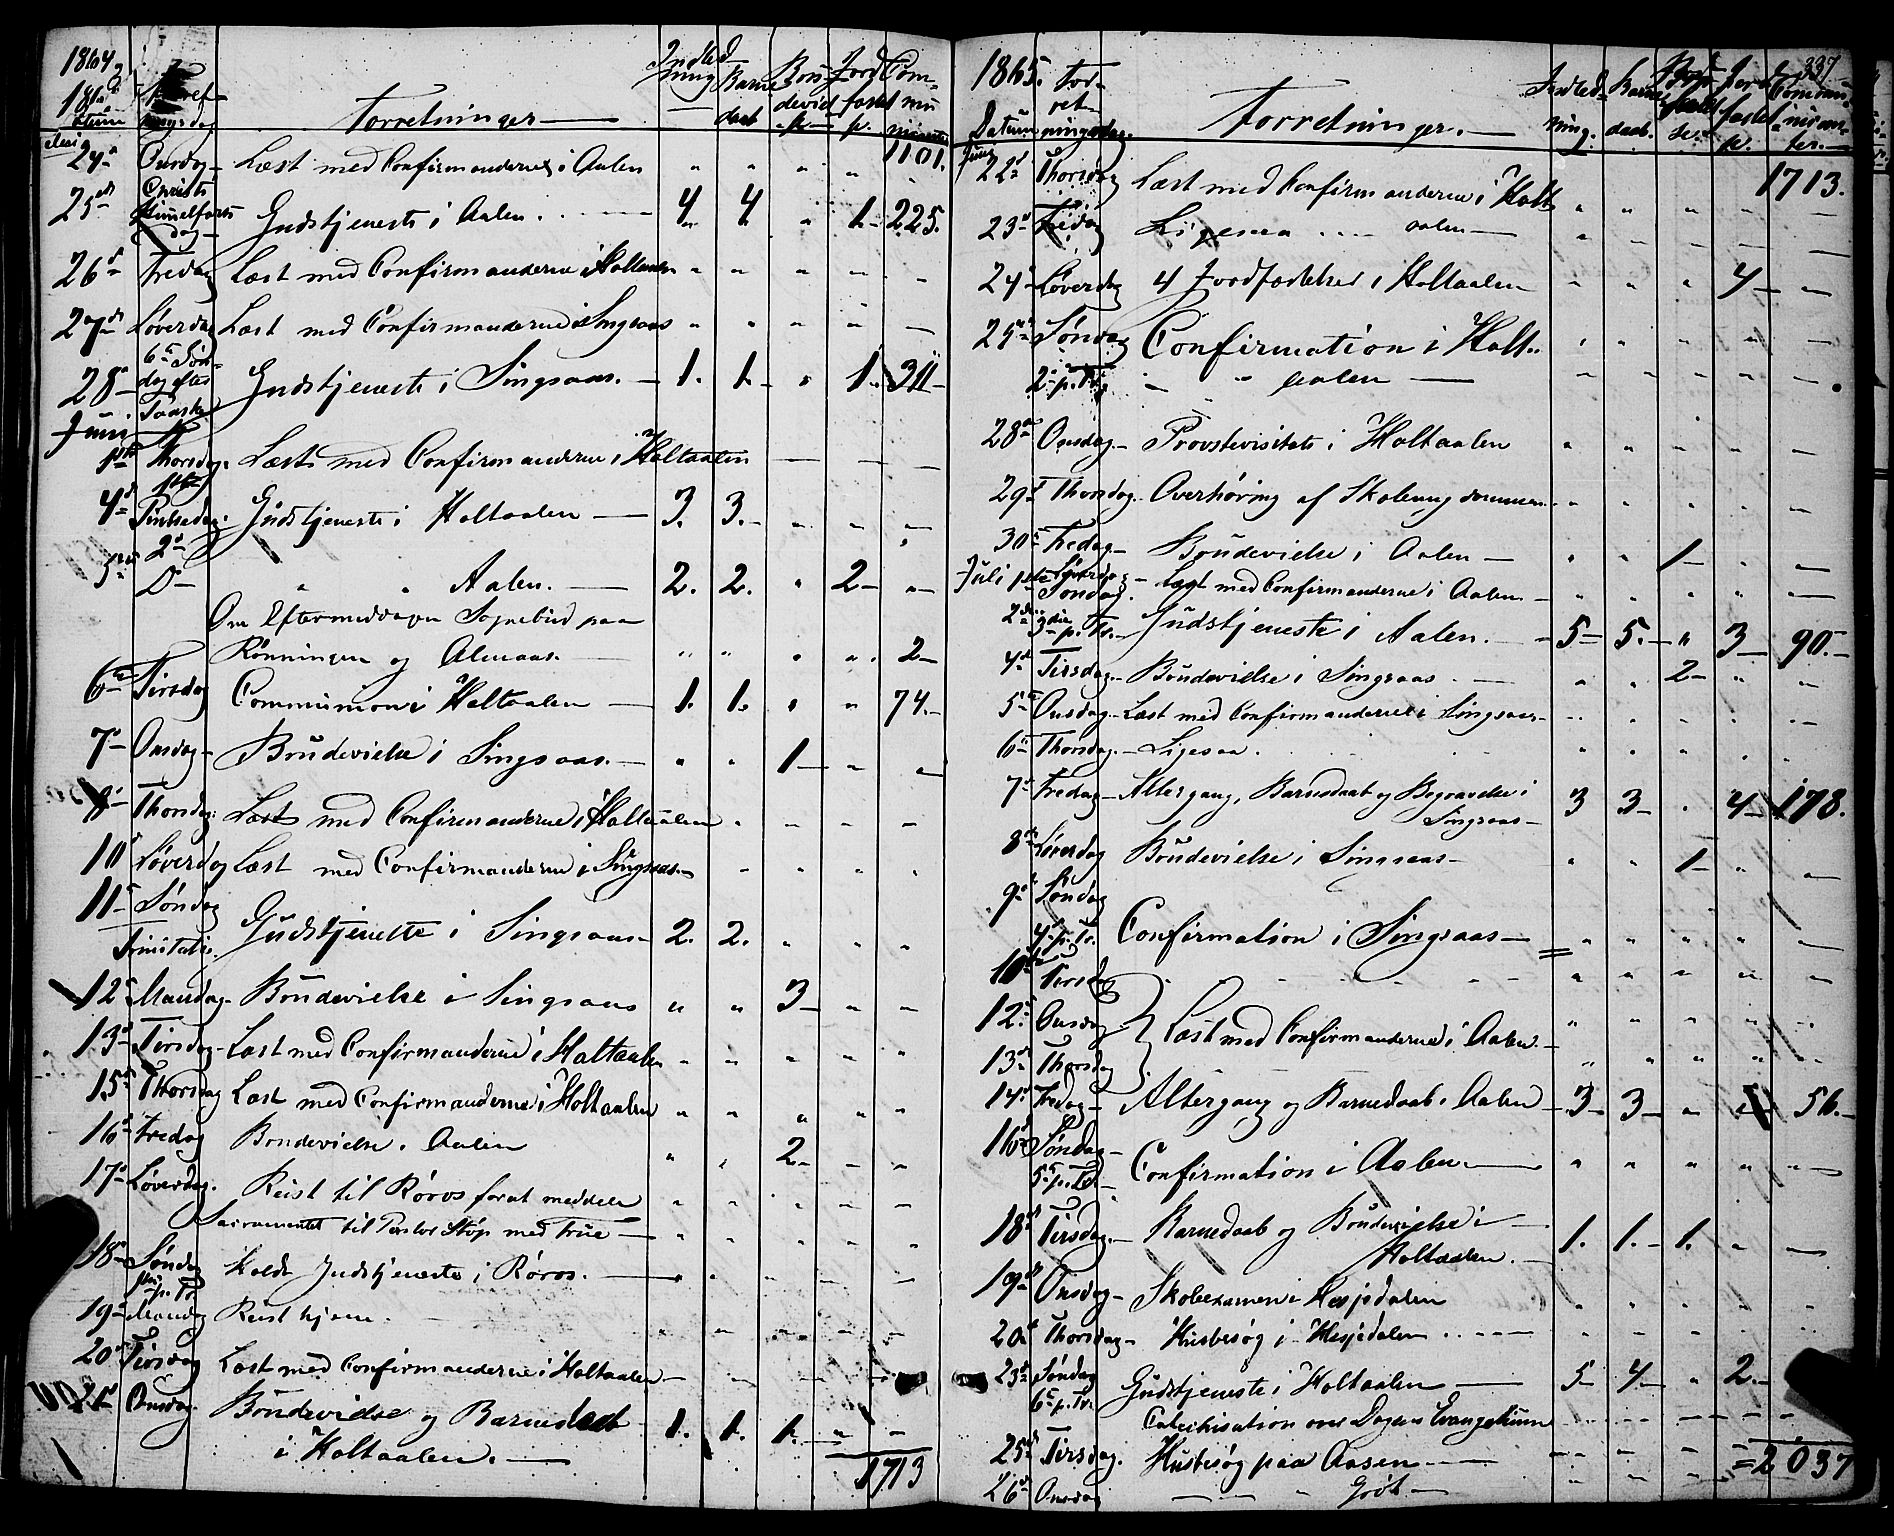 1864
Forretninger
24de Onsdag Læst med Confirmanderne i Aalen " " " " 1101.
25de Christi Himmelfarts dag Gudstjeneste i Aalen. 4 4 " 1 225.
26de Fredag Læst med Confirmanderne i Holtaalen " " " " "
27de Løverdag Læst med Confirmanderne i Singsaas " " " " "
28de 6te Søndag efter Paaske Gudstjeneste i Singsaas. 1. 1. " 1. 311
Juni
1ste Thorsdag. Læst med Confirmanderne i Holtaalen
4de 1ste Pintsedag. Gudstjeneste i Holtaalen 3. 3. " " "
5te 2den D° " " Aalen. 2. 2. " 2 "
Om Eftermiddagen Sognebud paa
Rønningen og Alenaas. " " " " 2
6te Tirsdag Communion i Holtaalen 1. 1. " " 74.
7de Onsdag Brudevielse i Singsaas. " " 1 " "
8de Thorsdag. Læst med Confirmanderne i Holtaalen " " " " "
10de Løverdag Læst med Confirmanderne i Singsaas. " " " "
11te Søndag Trinitatis. Gudstjeneste i Singsaas 2. 2. " " "
12te Mandag Brudevielse i Singsaas " " 3 " "
13de Tirsdag Læst med Confirmanderne i Holtaalen " " " " "
15de Thorsdag Læst med Confirmanderne i Holtaalen " " " " "
16de Fredag Brudevielse i Aalen " " 2 " "
17de Løverdag. Reist til Røros forat meddele " " " " "
Sacramentet til Pastor Stop med Frue " " " " "
18de Søndag 1ste p. Tr. Holdt Gudstjeneste i Røros. " " " " "
19de Mandag Reist hjem. " " " " "
20de Tirsdag Læst med Confirmanderne i Holtaalen " " " " "
21de Onsdag. Brudevielse og Barnedaab 1. 1. 1. " "
i Holtaalen. 1713
1865. 337
Datum Forretningsdag. Forretninger. Indledning. Barnedaab. Jordfæstelser. Communicanter.
Juni
22de Thorsdag Læst med Confirmanderne i Holt. " " " " 1713.
23de Fredag Ligesaa Aalen " " " " "
24de Løverdag 4 Jordfæstelser i Holtaalen " " " 4 "
25de Søndag Confirmation i Holt.. " " " " "
2. p. Tr. " " Aalen " " " " "
28de Onsdag. Provstevisitats i Holtaalen " " " " "
29de Thorsdag. Overhøring af Skoleungdommen " " " " "
30te Fredag Brudevielse i Aalen " " 1 " "
Juli 1ste Løverdag Læst med Confirmanderne i Aalen " " " " "
2den Søndag 3die p. Tr. Gudstjeneste i Aalen. 5 5. " 3 90.
4de Tirsdag. Brudevielse i Singsaas. " " 2 " "
5te Onsdag. Læst med Confirmanderne i Singsaas " " " " "
6te Thorsdag. Ligesaa. " " " " "
7de Fredag Altergang, Barnedaab og Begravelse i
Singsaas 3 3 " 4 178.
8de Løverdag Brudevielse i Singsaas " " 1 " "
9de Søndag 4. p. Tr. Confirmation i Singsaas " " " " "
10de Tirsdag " " " " "
12te Onsdag Læst med Confirmanderne i Aalen. " " " " "
13de Thorsdag " " " " "
14de Fredag Altergang og Barnedaab i Aalen 3 3 " " 56.
16de Søndag 5te p. Tr. Confirmation i Aalen. " " " " "
18de Tirsdag. Barnedaab og Brudevielse i
Holtaalen. 1. 1. 1. " "
19de Onsdag Skoleexamen i Hesjedalen " " " " "
20de Thorsdag Husbesøg i Hesjedalen " " " " "
23de Søndag 6te p. Tr. Gudstjeneste i Holtaalen 5 4 " 2.
Catechisation over Dagens Evangelium
25de Tirsdag. Husbesøg paa Aasen 2037
26de Onsdag " Grøt